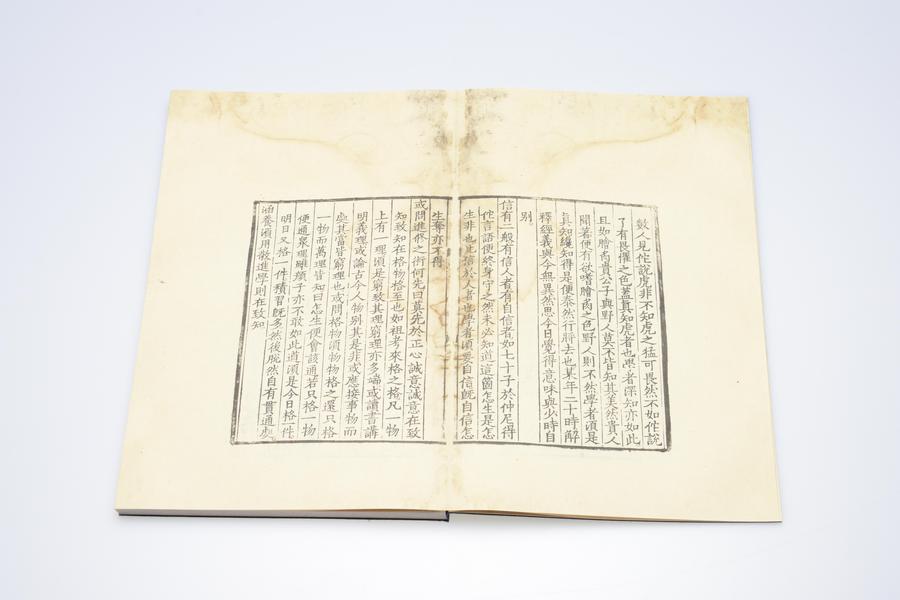 數人見佗說虎非不知虎之猛可畏然不如佗說
了有畏懼之色蓋眞知虎者也學者深知亦如此
且如膾炙貴公子與野人莫不皆知其美然貴人
聞著便有欲嗜膾炙之色野人則不然學者須是
眞知纔知得是便泰然行將去也某年二十時解
釋經義與今無異然思今日覺得意味與少時自
別
信有二般有信人者有自信者如七十子於仲尼得
佗言語便終身守之然未必知道這箇怎生是怎
生非也此信於人者也學者須要自信旣自信怎
生奪亦不得
或問進修之術何先曰莫先於正心誠意誠意在致
知致知在格物格至也如祖考來格之格凡一物
上有一理須是窮致其理窮理亦多端或讀書講
明義理或論古今人物別其是非或應接事物而
處其當皆窮理也或問格物須物物格之還只格
一物而萬理皆知曰怎生便會該通若只格一物
便通衆理雖顏子亦不敢如此道須是今日格一件
明日又格一件積習旣多然後脫然自有貫通處
涵養須用敬進學則在致知